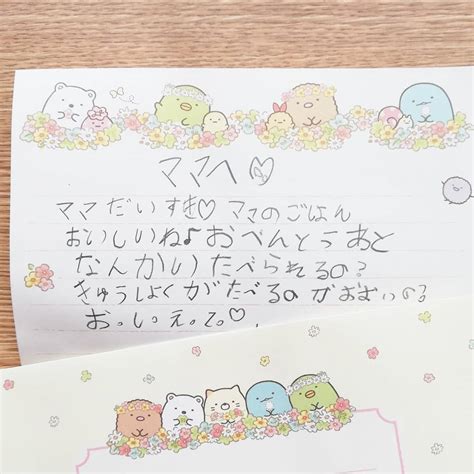 ママへ♡
ママ だいすき♡ ママのごはん
おいしいね♪おべんとうあと
なんかいたべられるの?
きゅうしょくがたべるのがおおいの?
お。しいえ。て。♡.